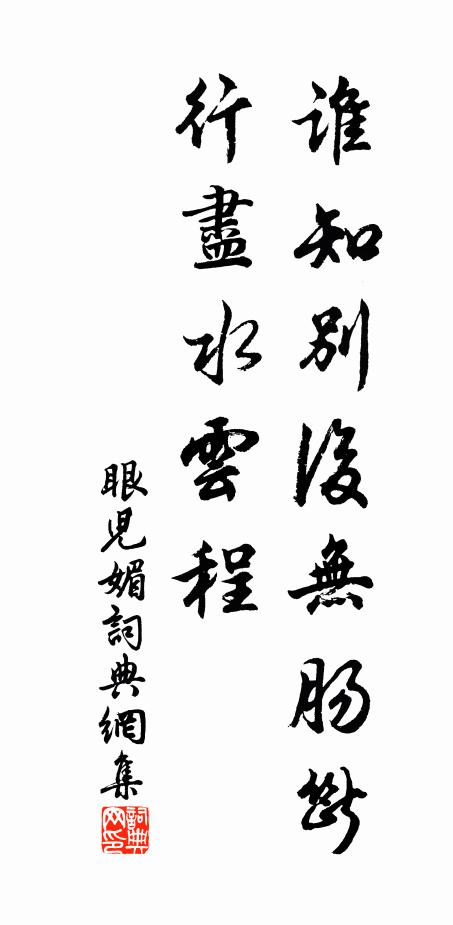 誰知別後無腸斷
行盡水雲程
眼兒媚詞典網集
詞典网印